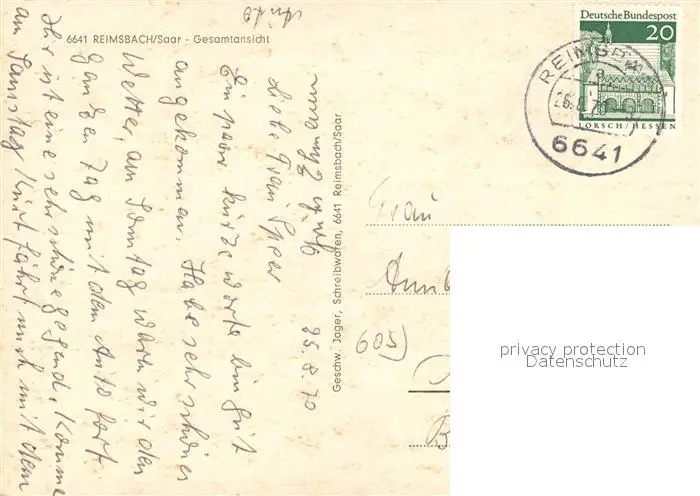 6641 REIMSBACH/Saar - Gesamtansicht
Deutsche Bundespost
20
LORSCH/HESSEN
REIMSB
26.8.70
6641
Geschw. Jager, Schreibwaren, 6641 Reimsbach/Saar
25.8.70
Liebe Frau Speer
Ein paar kurze Worte bin gut
angekommen. Habe sehr schönes
Wetter, am Sonntag waren wir den
ganzen Tag mit dem Auto fort
Hir ist eine sehr schöne gegend. Komme
am Samstag Kurt fährt mich mit dem
Auto
Frau
605)
B
privacy protection
Datenschutz